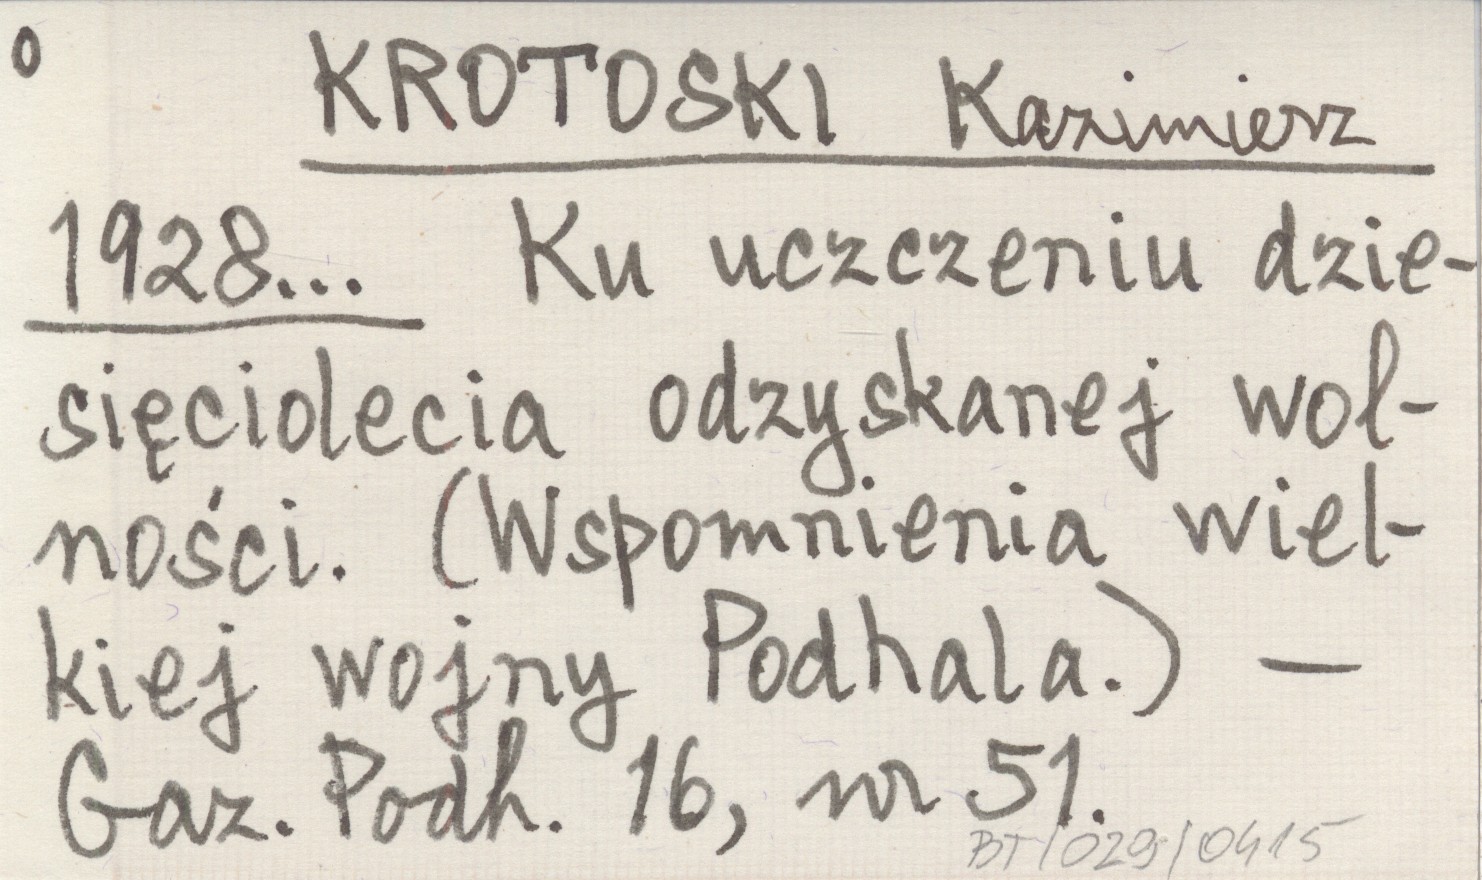 0 KROTOSKI Kazimierz
1928... Ku uczczeniu dzie-
sięciolecia odzyskanej wol-
ności. (Wspomnienia wiel-
kiej wojny Podhala.) —
Gaz. Podh. 16, nr 51.
BT/029/0415